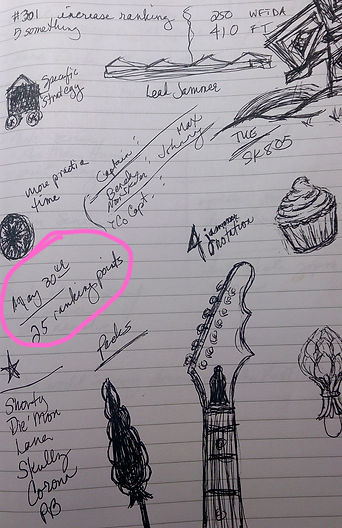 #301 increase ranking
5 something
250 WFTDA
410 FT
Lead Jammer
Specific
Strategy
Captain: Max
Bench: Johnny
Non Skater:
Co Capt.:
THE
SK805
more practice
time
4 jammer
rotation
May 30th
25 ranking points
Packs
Shorty
Die Mon
Lana
Skully
Corona
PB